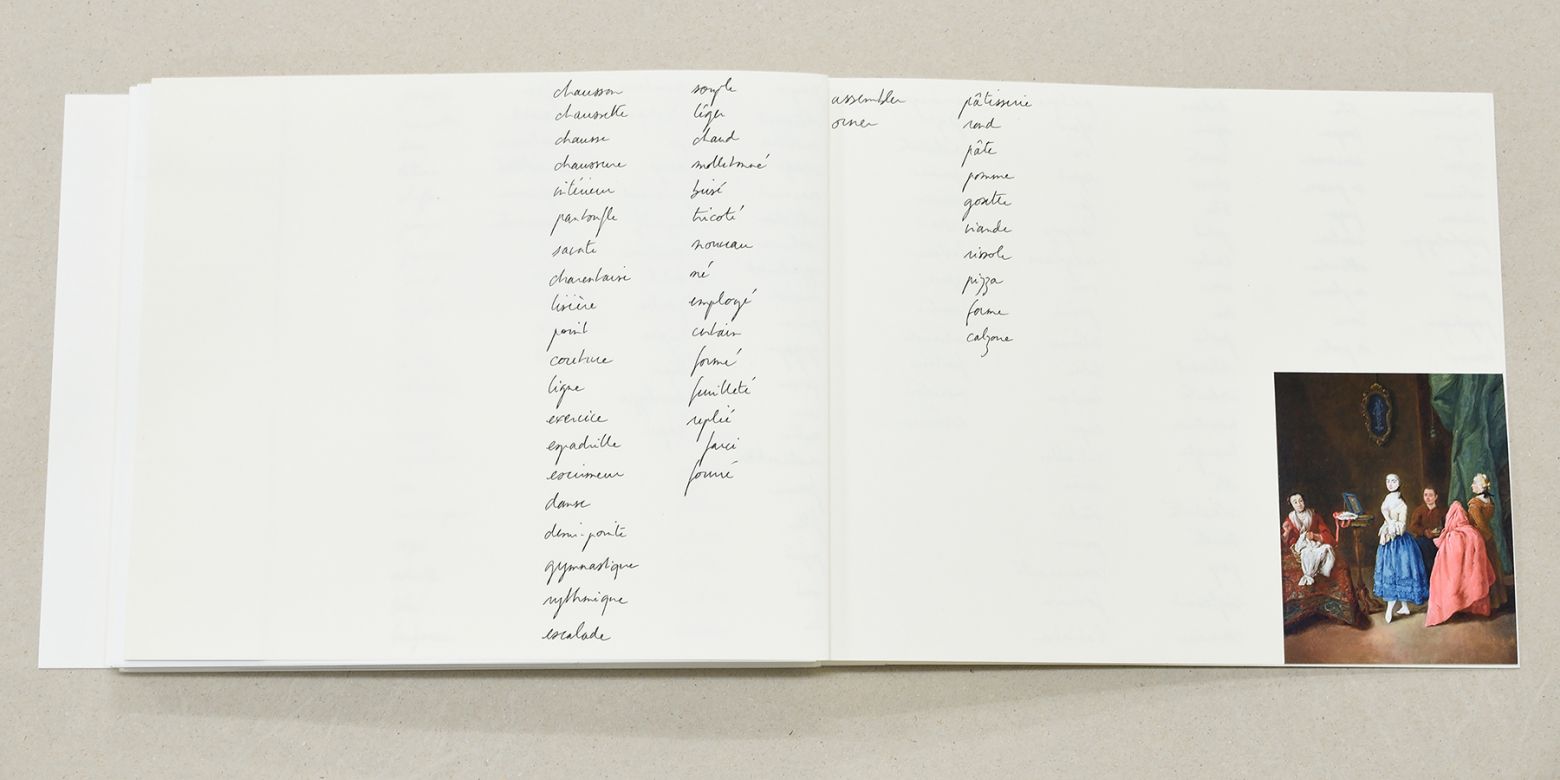 chausson
chaussette
chausse
chaussure
intérieur
pantoufle
savate
charentaise
lisière
point
couture
ligne
exercice
espadrille
escrimeur
danse
demi-pointe
gymnastique
rythmique
escalade
souple
léger
chaud
molletonné
brisé
tricoté
nouveau
né
employé
certain
formé
feuilleté
replié
farci
fourré
assembler
orner
pâtisserie
rond
pâte
pomme
goutte
viande
rissole
pizza
forme
calzone